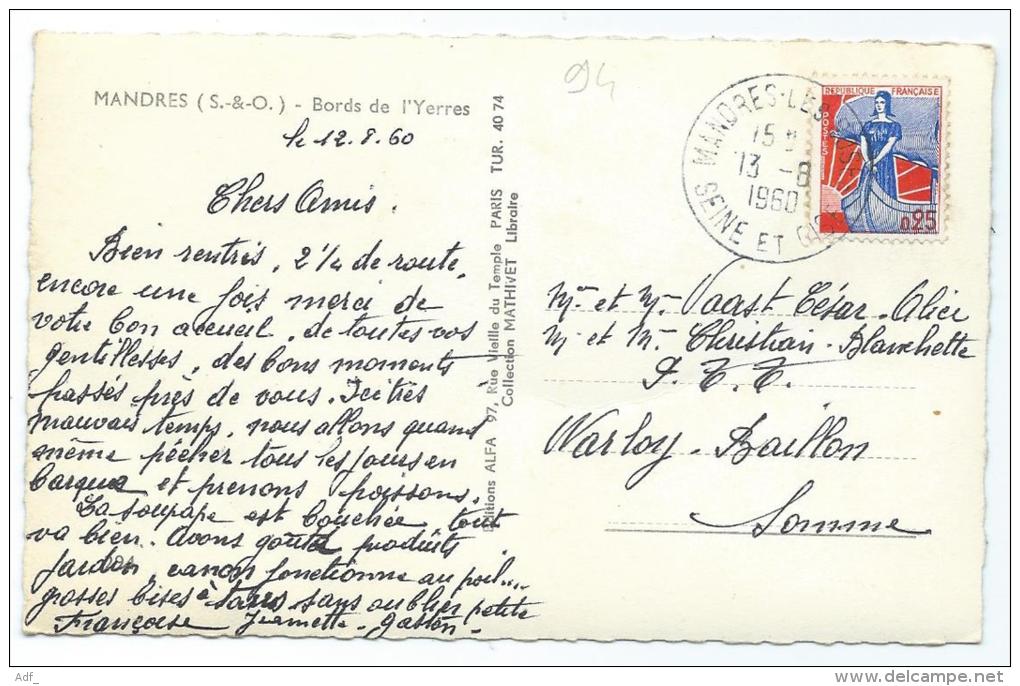 94
MANDRES (S.-&-O.) - Bords de l'Yerres
le 12.8.60
Chers Amis.
Bien rentrés, 2 1/4 de route,
encore une fois merci de
votre bon accueil, de toutes vos
gentillesses, des bons moments
passés près de vous. Ici très
mauvais temps, nous allons quand
même pêcher tous les jours en
barque et prenons poissons.
La soupape est bouchée, tout
va bien. Avons goûté produits
jardin, canon fonctionne au poil....
grosses bises à tous sans oublier petite
Françoise Jeannette - Gaston -
Editions ALFA 97, Rue Vieille du Temple PARIS TUR. 40 74
Collection MATHIVET Libraire
MANDRES-LES
15
13 - 8
1960
SEINE ET OISE
REPUBLIQUE FRANÇAISE
POSTES
0,25
Mr et Me Vaast César - Alice
Mr et Me Christian - Blanchette
P. T. T.
Warloy - Baillon
Somme
Adf_
www.delcampe.net